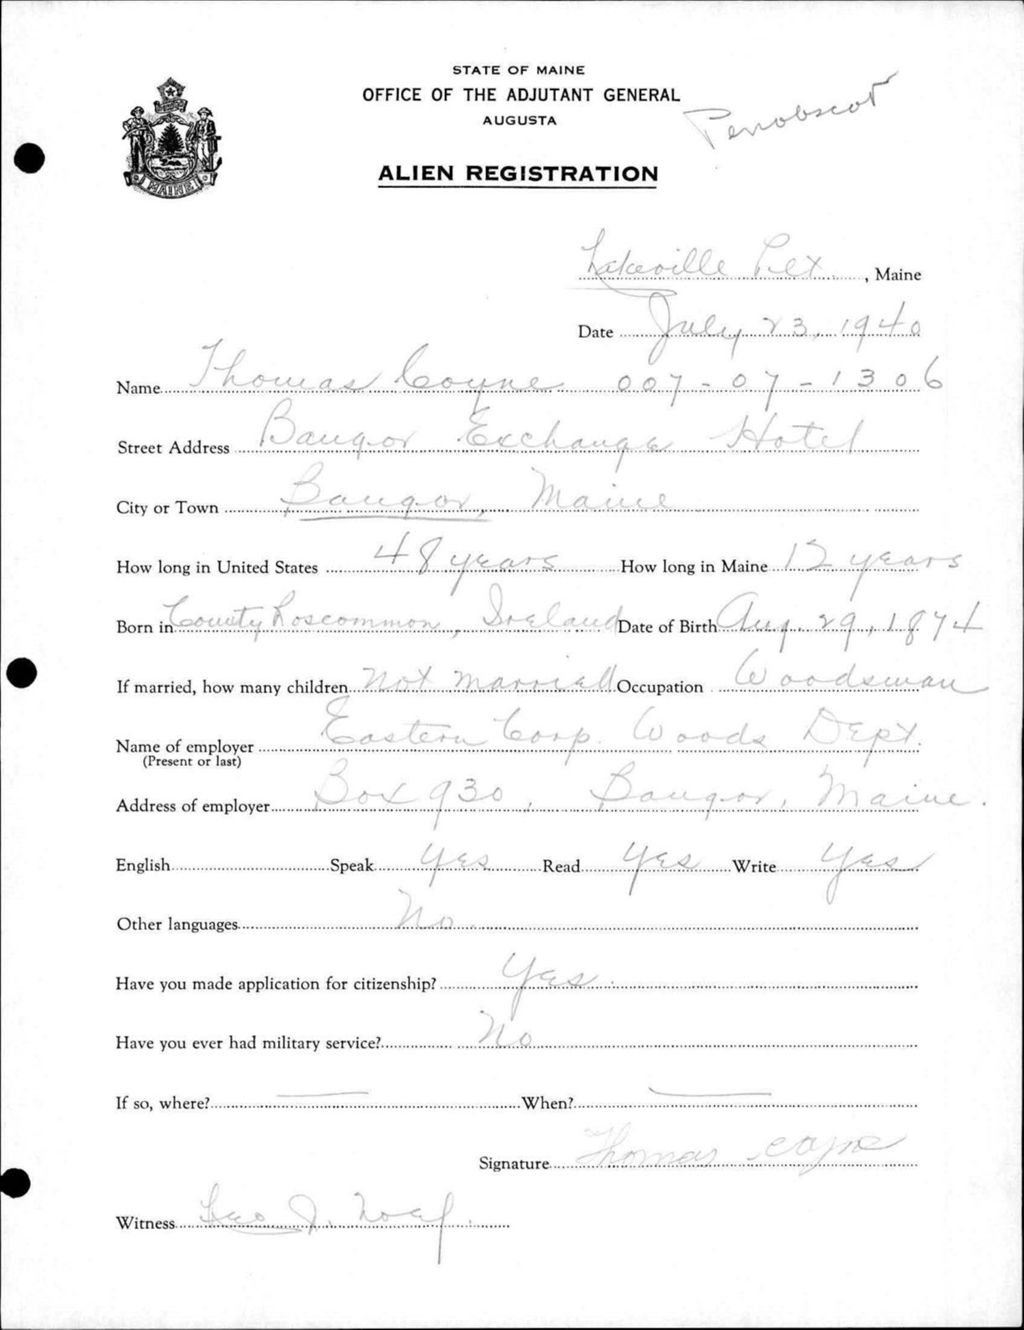 STATE OF MAINE
OFFICE OF THE ADJUTANT GENERAL
AUGUSTA
Penobscot
ALIEN REGISTRATION
MAINE
Lakeville Plt , Maine
Date July 23, 1940
Name Thomas Coyne 007-07-1306
Street Address Bangor Exchange Hotel
City or Town Bangor, Maine
How long in United States 48 years How long in Maine 12 years
Born in County Roscommon, Ireland Date of Birth Aug. 29, 1874
If married, how many children Not married Occupation Woodsman
Name of employer Eastern Corp. Woods Dept.
(Present or last)
Address of employer Box 930, Bangor, Maine.
English Speak Yes Read Yes Write Yes
Other languages No
Have you made application for citizenship? Yes
Have you ever had military service? No
If so, where? — When? —
Signature Thomas Coyne
Witness J.